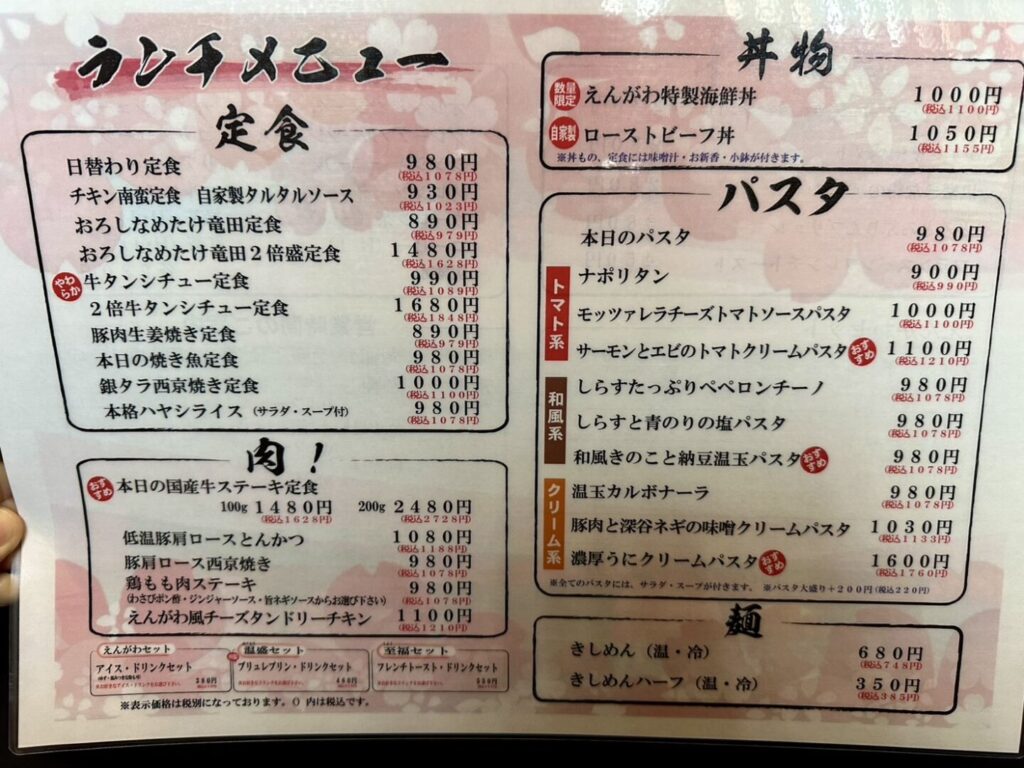 ランチメニュー
定食
日替わり定食 980円
(税込1078円)
チキン南蛮定食 自家製タルタルソース 930円
(税込1023円)
おろしなめたけ竜田定食 890円
(税込979円)
おろしなめたけ竜田2倍盛定食 1480円
(税込1628円)
やわらか 牛タンシチュー定食 990円
(税込1089円)
2倍牛タンシチュー定食 1680円
(税込1848円)
豚肉生姜焼き定食 890円
(税込979円)
本日の焼き魚定食 980円
(税込1078円)
銀タラ西京焼き定食 1000円
(税込1100円)
本格ハヤシライス (サラダ・スープ付) 980円
(税込1078円)
肉!
おすすめ 本日の国産牛ステーキ定食
100g 1480円 200g 2480円
(税込1628円) (税込2728円)
低温豚肩ロースとんかつ 1080円
(税込1188円)
豚肩ロース西京焼き 980円
(税込1078円)
鶏もも肉ステーキ 980円
(わさびポン酢・ジンジャーソース・旨ネギソースからお選び下さい) (税込1078円)
えんがわ風チーズタンドリーチキン 1100円
(税込1210円)
えんがわセット
アイス・ドリンクセット
380円
温盛セット
ブリュレプリン・ドリンクセット
460円
至福セット
フレンチトースト・ドリンクセット
580円
※表示価格は税別になっております。() 内は税込です。
丼物
数量限定 えんがわ特製海鮮丼 1000円
(税込1100円)
自家製 ローストビーフ丼 1050円
(税込1155円)
※丼もの、定食には味噌汁・お新香・小鉢が付きます。
パスタ
本日のパスタ 980円
(税込1078円)
トマト系
ナポリタン 900円
(税込990円)
モッツァレラチーズトマトソースパスタ 1000円
(税込1100円)
サーモンとエビのトマトクリームパスタ おすすめ 1100円
(税込1210円)
和風系
しらすたっぷりペペロンチーノ 980円
(税込1078円)
しらすと青のりの塩パスタ 980円
(税込1078円)
和風きのこと納豆温玉パスタ おすすめ 980円
(税込1078円)
クリーム系
温玉カルボナーラ 980円
(税込1078円)
豚肉と深谷ネギの味噌クリームパスタ 1030円
(税込1133円)
濃厚うにクリームパスタ おすすめ 1600円
(税込1760円)
※全てのパスタには、サラダ・スープが付きます。 ※パスタ大盛り+200円(税込220円)
麺
きしめん (温・冷) 680円
(税込748円)
きしめんハーフ (温・冷) 350円
(税込385円)